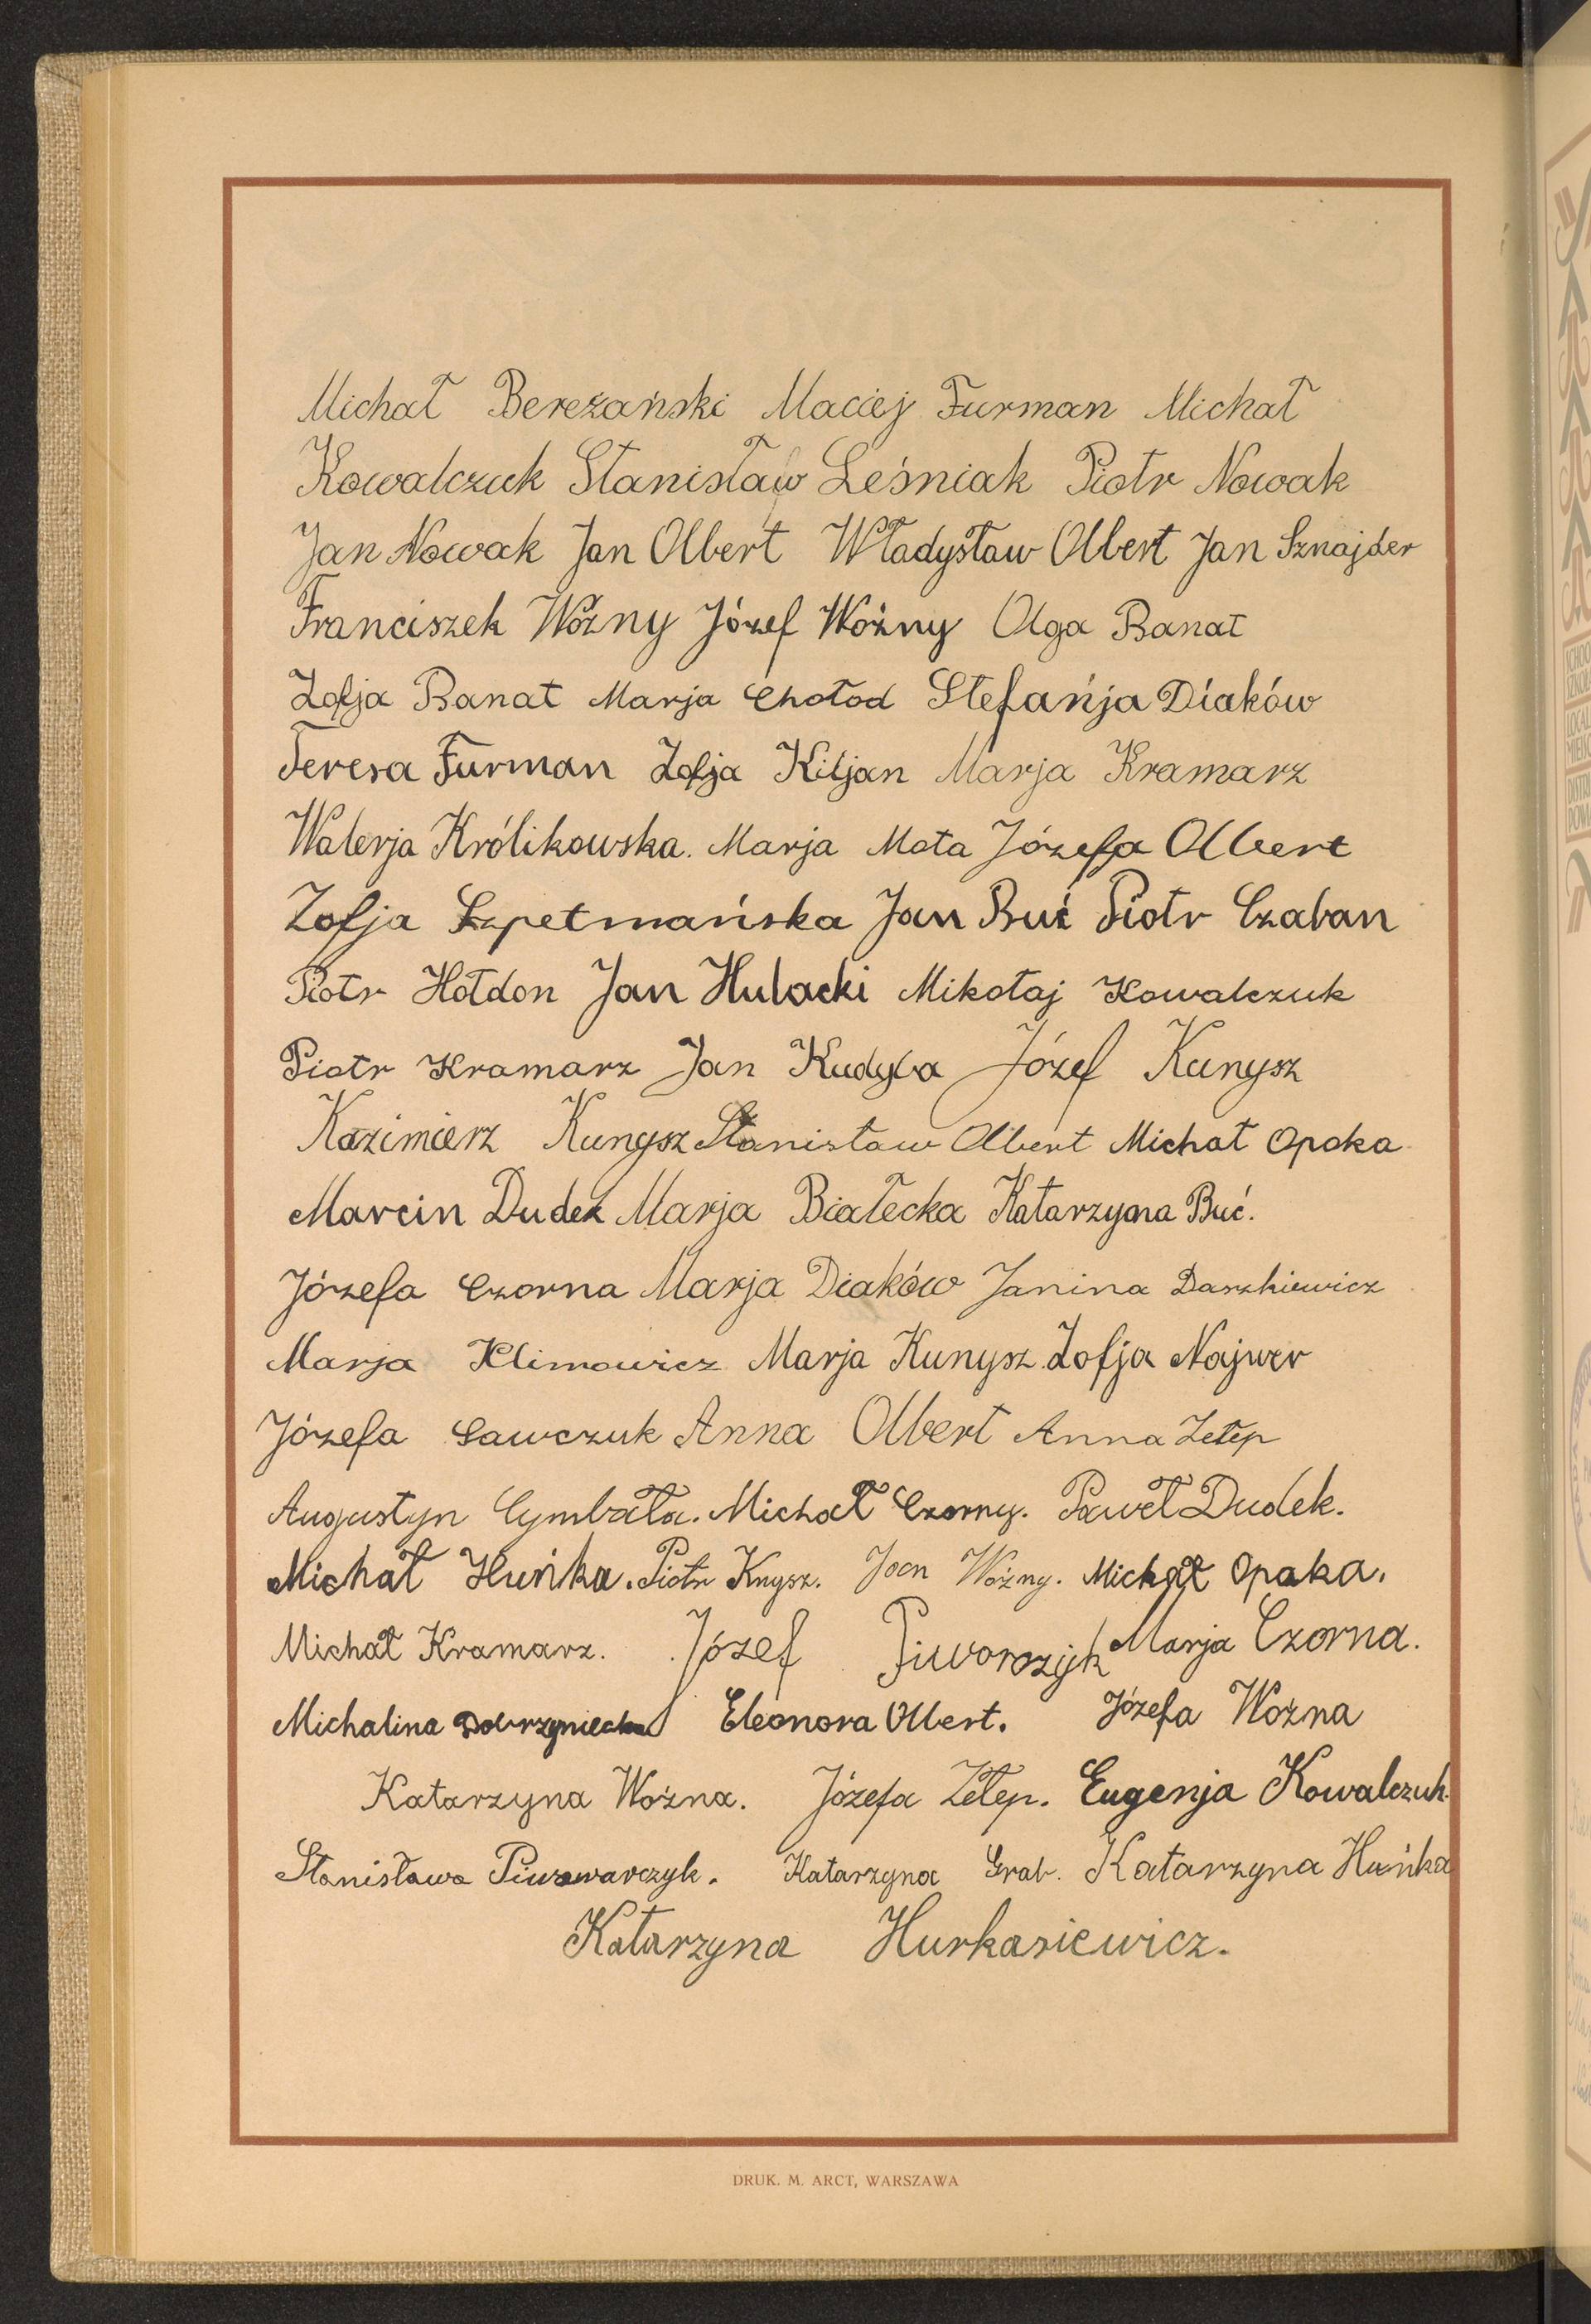 Michał Bereżański Maciej Furman Michał
Kowalczuk Stanisław Leśniak Piotr Nowak
Jan Nowak Jan Olbert Władysław Olbert Jan Sznajder
Franciszek Woźny Józef Woźny Olga Banat
Zofja Banat Marja Chołod Stefańja Diaków
Teresa Furman Zofja Kiljan Marja Kramarz
Walerja Królikowska. Marja Mata Józefa Olbert
Zofja Szpetmańska Jan Buć Piotr Czaban
Piotr Hołdon Jan Hulacki Mikołaj Kowalczuk
Piotr Kramarz Jan Kudyba Józef Kunysz
Kazimierz Kunysz Stanisław Olbert Michał Opoka
Marcin Dudek Marja Białecka Katarzyna Buć.
Józefa Czorna Marja Diaków Janina Daszkiewicz
Marja Klimowicz Marja Kunysz Zofja Najwer
Józefa Sawczuk Anna Olbert Anna Zełep
Augustyn Cymbała. Michał Czorny. Paweł Dudek.
Michał Huńka. Piotr Knysz. Jan Woźny. Michał Opaka.
Michał Kramarz. Józef Piworozyk Marja Czorna.
Michalina Dobrzyniecka Eleonora Olbert. Józefa Woźna
Katarzyna Woźna. Józefa Zełep. Eugenja Kowalczuk.
Stanisława Piwowarczyk. Katarzyna Grab. Katarzyna Huńka
Katarzyna Hurkasiewicz.
DRUK. M. ARCT, WARSZAWA